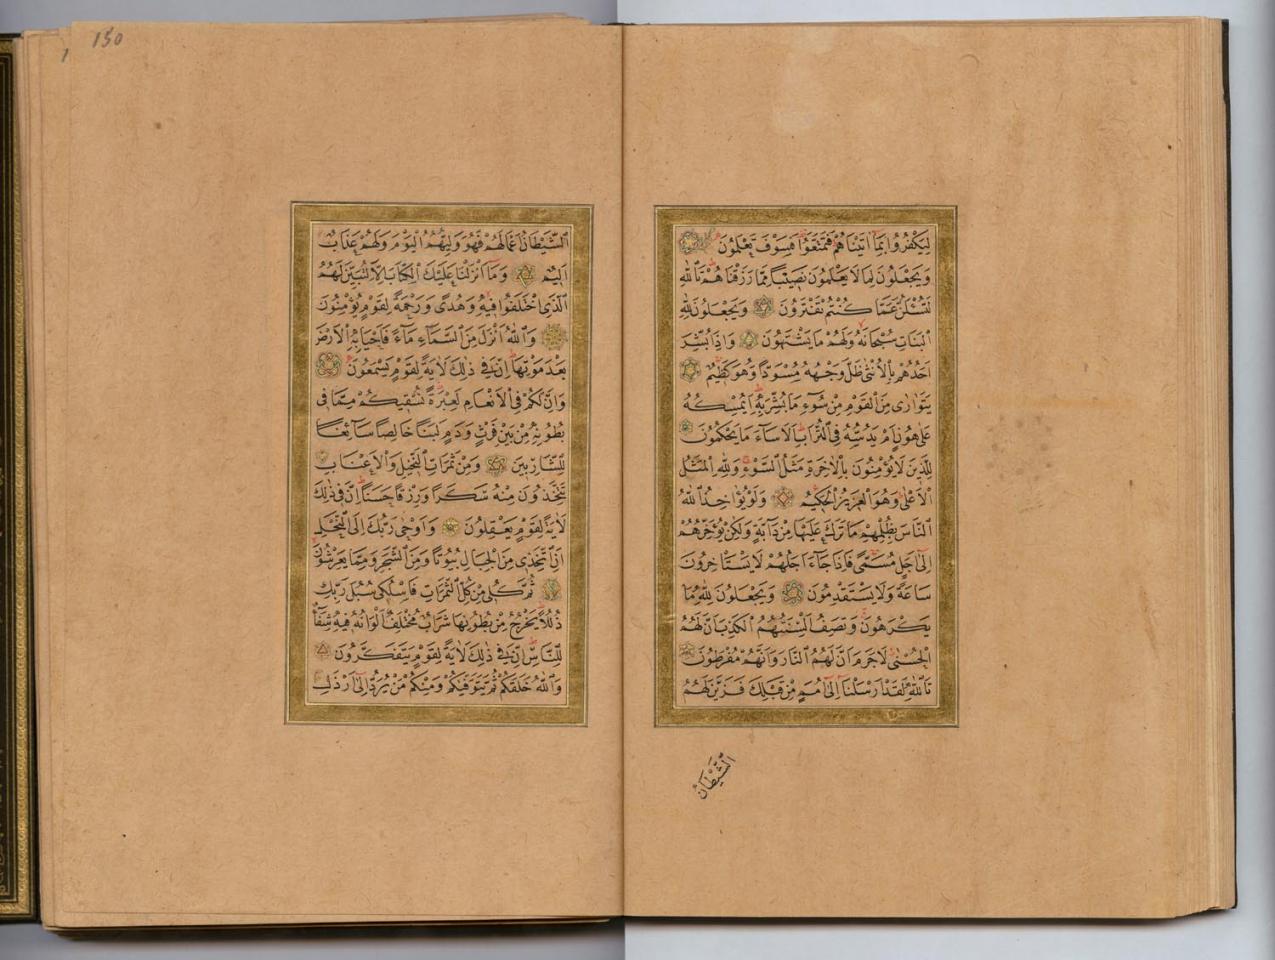 لِيَكْفُرُوا بِمَٓا اٰتَيْنَاهُمْ فَتَمَتَّعُوا فَسَوْفَ تَعْلَمُونَ
وَيَجْعَلُونَ لِمَا لَا يَعْلَمُونَ نَصِيبًا مِمَّا رَزَقْنَاهُمْ تَاللّٰهِ
لَتُسْـَٔلُنَّ عَمَّا كُنْتُمْ تَفْتَرُونَ وَيَجْعَلُونَ لِلّٰهِ
الْبَنَاتِ سُبْحَانَهُ وَلَهُمْ مَا يَشْتَهُونَ وَاِذَا بُشِّرَ
اَحَدُهُمْ بِالْاُنْثٰى ظَلَّ وَجْهُهُ مُسْوَدًّا وَهُوَ كَظِيمٌ
يَتَوَارٰى مِنَ الْقَوْمِ مِنْ سُٓوءِ مَا بُشِّرَ بِهِ اَيُمْسِكُهُ
عَلٰى هُونٍ اَمْ يَدُسُّهُ فِى التُّرَابِ اَلَا سَٓاءَ مَا يَحْكُمُونَ
لِلَّذِينَ لَا يُؤْمِنُونَ بِالْاٰخِرَةِ مَثَلُ السَّوْءِ وَلِلّٰهِ الْمَثَلُ
الْاَعْلٰى وَهُوَ الْعَزِيزُ الْحَكِيمُ وَلَوْ يُؤَاخِذُ اللّٰهُ
النَّاسَ بِظُلْمِهِمْ مَا تَرَكَ عَلَيْهَا مِنْ دَٓابَّةٍ وَلٰكِنْ يُؤَخِّرُهُمْ
اِلٰٓى اَجَلٍ مُسَمًّى فَاِذَا جَٓاءَ اَجَلُهُمْ لَا يَسْتَاْخِرُونَ
سَاعَةً وَلَا يَسْتَقْدِمُونَ وَيَجْعَلُونَ لِلّٰهِ مَا
يَكْرَهُونَ وَتَصِفُ اَلْسِنَتُهُمُ الْكَذِبَ اَنَّ لَهُمُ
الْحُسْنٰى لَا جَرَمَ اَنَّ لَهُمُ النَّارَ وَاَنَّهُمْ مُفْرَطُونَ
تَاللّٰهِ لَقَدْ اَرْسَلْنَٓا اِلٰٓى اُمَمٍ مِنْ قَبْلِكَ فَزَيَّنَ لَهُمُ
الشَّيْطَانُ
150
الشَّيْطَانُ اَعْمَالَهُمْ فَهُوَ وَلِيُّهُمُ الْيَوْمَ وَلَهُمْ عَذَابٌ
اَلِيمٌ وَمَٓا اَنْزَلْنَا عَلَيْكَ الْكِتَابَ اِلَّا لِتُبَيِّنَ لَهُمُ
الَّذِى اخْتَلَفُوا فِيهِ وَهُدًى وَرَحْمَةً لِقَوْمٍ يُؤْمِنُونَ
وَاللّٰهُ اَنْزَلَ مِنَ السَّمَٓاءِ مَٓاءً فَاَحْيَا بِهِ الْاَرْضَ
بَعْدَ مَوْتِهَا اِنَّ فِى ذٰلِكَ لَاٰيَةً لِقَوْمٍ يَسْمَعُونَ
وَاِنَّ لَكُمْ فِى الْاَنْعَامِ لَعِبْرَةً نُسْقِيكُمْ مِمَّا فِى
بُطُونِهِ مِنْ بَيْنِ فَرْثٍ وَدَمٍ لَبَنًا خَالِصًا سَٓائِغًا
لِلشَّارِبِينَ وَمِنْ ثَمَرَاتِ النَّخِيلِ وَالْاَعْنَابِ
تَتَّخِذُونَ مِنْهُ سَكَرًا وَرِزْقًا حَسَنًا اِنَّ فِى ذٰلِكَ
لَاٰيَةً لِقَوْمٍ يَعْقِلُونَ وَاَوْحٰى رَبُّكَ اِلَى النَّحْلِ
اَنِ اتَّخِذِى مِنَ الْجِبَالِ بُيُوتًا وَمِنَ الشَّجَرِ وَمِمَّا يَعْرِشُونَ
ثُمَّ كُلِى مِنْ كُلِّ الثَّمَرَاتِ فَاسْلُكِى سُبُلَ رَبِّكِ
ذُلُلًا يَخْرُجُ مِنْ بُطُونِهَا شَرَابٌ مُخْتَلِفٌ اَلْوَانُهُ فِيهِ شِفَٓاءٌ
لِلنَّاسِ اِنَّ فِى ذٰلِكَ لَاٰيَةً لِقَوْمٍ يَتَفَكَّرُونَ
وَاللّٰهُ خَلَقَكُمْ ثُمَّ يَتَوَفّٰيكُمْ وَمِنْكُمْ مَنْ يُرَدُّ اِلٰٓى اَرْذَلِ